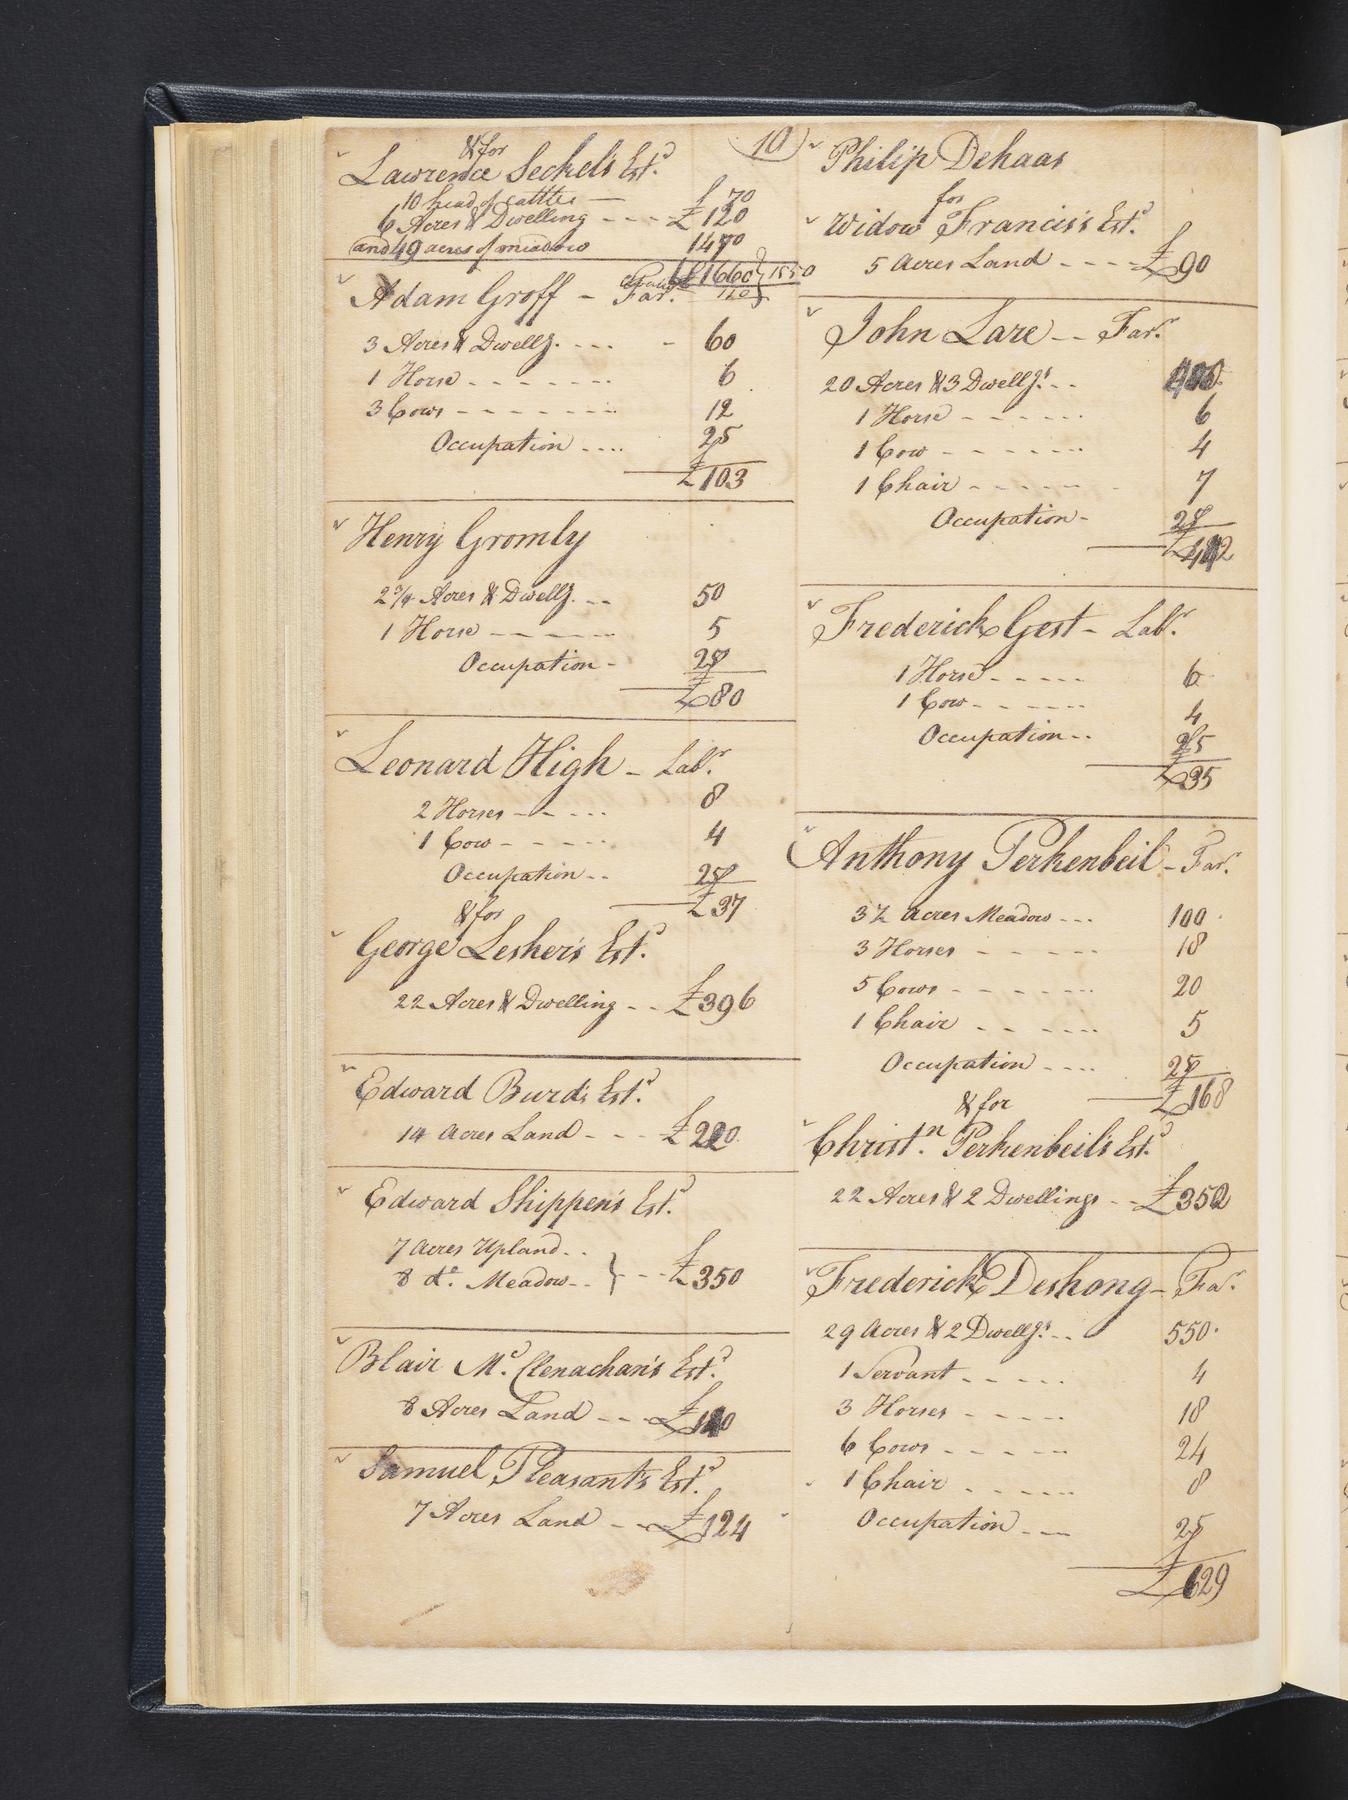 10
& for
Lawrence Seckel's Estd
10 head of cattle — £ 70
6 Acres & Dwelling - - - - £ 120
and 49 acres of meadow 1470
£1660 } 1550
110
Adam Groff - Far.
3 Acres & Dwellg. - - - - 60
1 Horse - - - - - - - 6
3 Cows - - - - - - - 12
Occupation - - - - 25
£103
Henry Gromly
2 3/4 Acres & Dwellg. - - 50
1 Horse - - - - - - 5
Occupation - 25
£80
Leonard High - Labr.
2 Horses - - - - - 8
1 Cow - - - - - - 4
Occupation - - 25
£37
& for
George Lesher's Estd.
22 Acres & Dwelling - - £396
Edward Burd's Estd.
14 Acres Land - - - £220
Edward Shippen's Estd.
7 Acres Upland - -
8 do. Meadow - - } - - - £350
Blair Mc. Clenachan's Estd.
8 Acres Land - - - £140
Samuel Pleasant's Estd.
7 Acres Land - - - £124
Philip Dehaas
for
Widow Francis's Estd.
5 Acres Land - - - - £90
John Lare - - Farr.
20 Acres & 3 Dwellgs. - - 400
1 Horse - - - - - - 6
1 Cow - - - - - - - 4
1 Chair - - - - - - 7
Occupation - 25
£442
Frederick Gest - Labr.
1 Horse - - - - - 6
1 Cow - - - - - - 4
Occupation - - 25
£35
Anthony Perkenbeil - Farr.
3 1/2 Acres Meadow - - - 100
3 Horses - - - - - 18
5 Cows - - - - - - - 20
1 Chair - - - - - - 5
Occupation - - - - 25
£168
& for
Christn. Perkenbeil's Estd.
22 Acres & 2 Dwellings - - £352
Frederick Deshong - Far.
29 Acres & 2 Dwellgs. - - 550
1 Servant - - - - - 4
3 Horses - - - - - 18
6 Cows - - - - - - 24
1 Chair - - - - - 8
Occupation - - - 25
£629